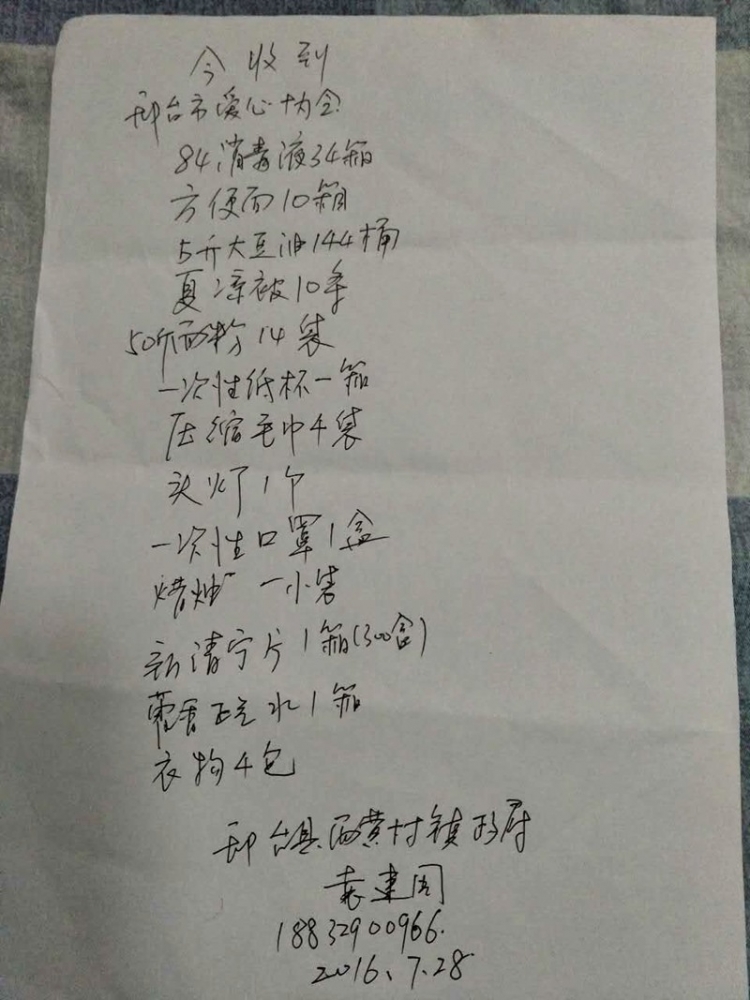 今收到
邢台市爱心协会
84消毒液34箱
方便面10箱
5斤大豆油144桶
夏凉被10条
50斤面粉14袋
一次性纸杯一箱
压缩毛巾4袋
头灯1个
一次性口罩1盒
一小袋
新清宁片1箱(300盒)
藿香正气水1箱
衣物4包
邢台县西黄村镇政府
袁建国
18832900966.
2016、7.28